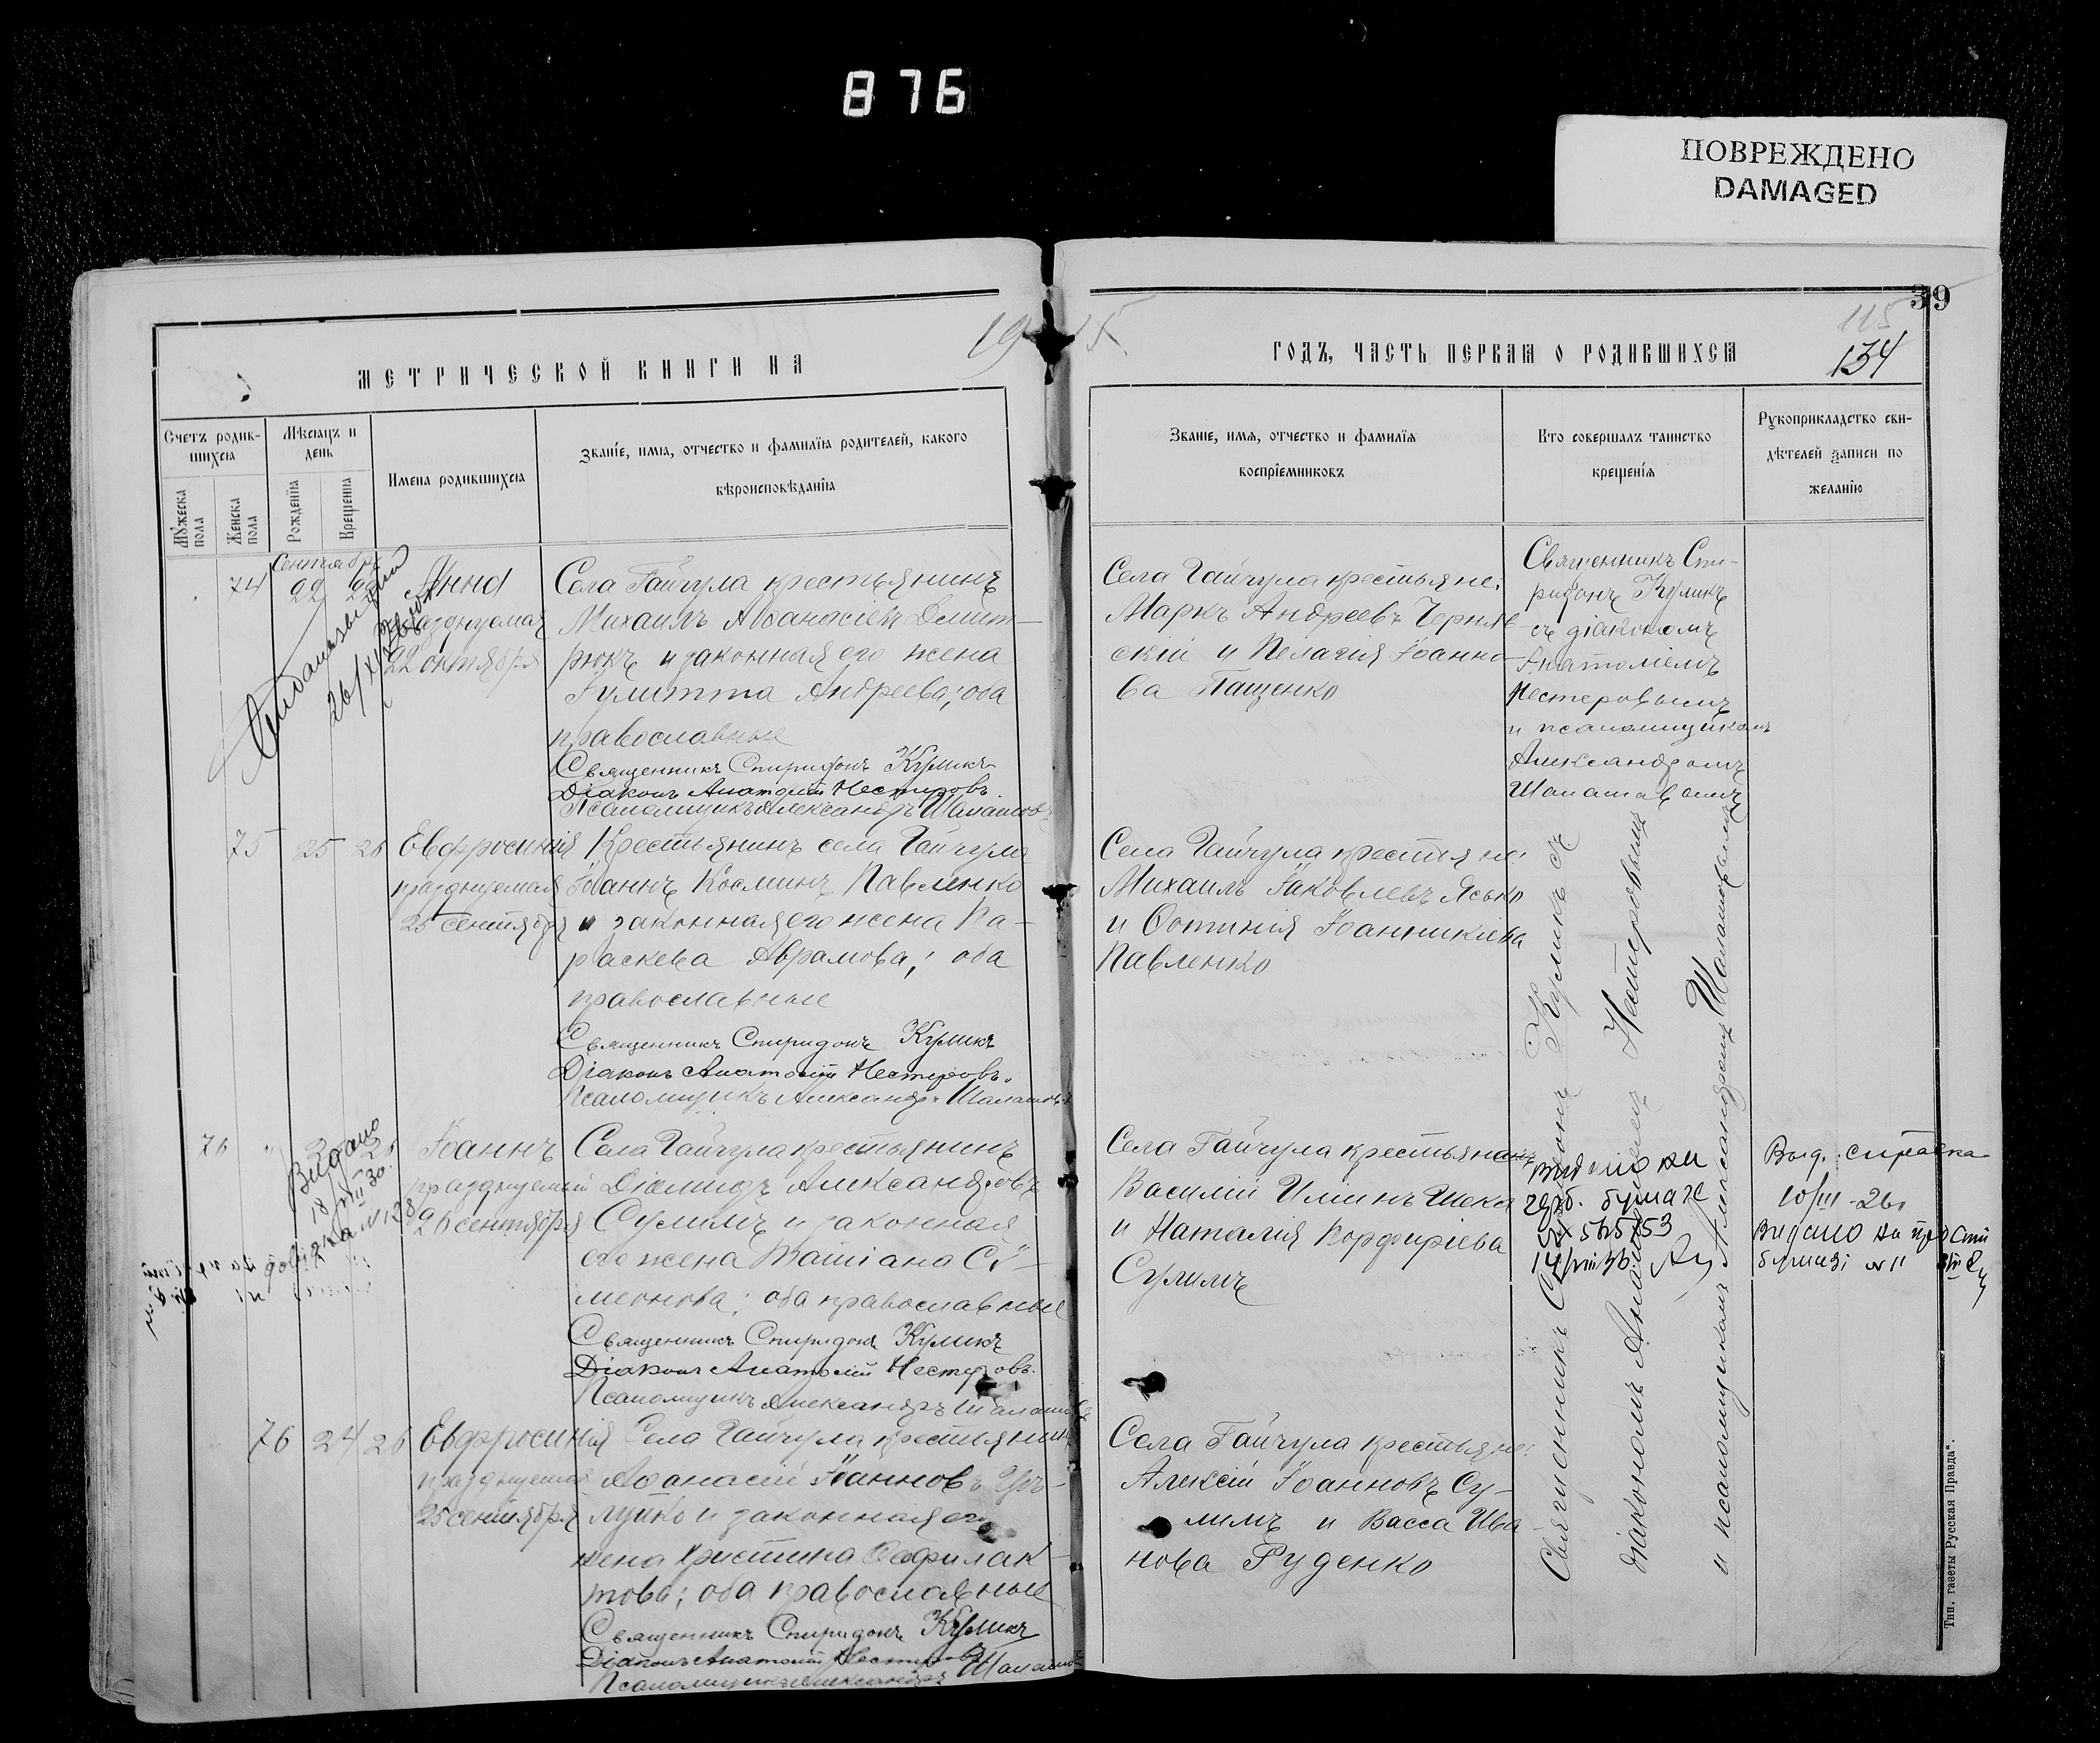 876
ПОВРЕЖДЕНО
DAMAGED
39
115
134
МЕТРИЧЕСКОЙ КНИГИ НА
1915
ГОДЪ, ЧАСТЬ ПЕРВАЯ О РОДИВШИХСЯ
Счетъ родив-
шихся
Мужеска пола
Женска пола
Мѣсяцъ и
день
Рожденія
Крещенія
Имена родившихся
Званіе, имя, отчество и фамилія родителей, какого
вѣроисповѣданія
Званіе, имя, отчество и фамилія
воспріемниковъ
Кто совершалъ таинство
крещенія
Рукоприкладство сви-
дѣтелей записи по
желанію
Сентябрь
74 22 22 Анна
празднуемая
22 октября
26/XI
Села Гайчула крестьянинъ
Михаилъ Аѳанасіевъ Дмит-
рюкъ и законная его жена
Іулитта Андреева; оба
православные
Священникъ Спиридонъ Куликъ
Діаконъ Анатолій Нестеровъ.
Псаломщикъ Александръ Шалашовъ
Села Гайчула крестьяне:
Маркъ Андреевъ Черняв-
скій и Пелагія Іоанно-
ва Пащенко
Священникъ Спи-
ридонъ Куликъ
съ діакономъ
Анатоліемъ
Нестеровымъ
и псаломщикомъ
Александромъ
Шалашовымъ
75 25 26 Евфросинія
празднуемая
25 сентября
Крестьянинъ села Гайчула
Іоаннъ Косминъ Павленко
и законная его жена Па-
раскева Аврамова; оба
православные
Священникъ Спиридонъ Куликъ
Діаконъ Анатолій Нестеровъ.
Псаломщикъ Александръ Шалашовъ
Села Гайчула крестьяне:
Михаилъ Іаковлевъ Ясько
и Фотинія Іоанникіева
Павленко
Священникъ Спиридонъ Куликъ съ
діакономъ Анатоліемъ Нестеровымъ
и псаломщикомъ Александромъ Шалашовымъ
76 26 Іоаннъ
празднуемый
26 сентября
Видано
18/VIII 30.
довідка N 128
Села Гайчула крестьянинъ
Діомидъ Александровъ
Сулимъ и законная
его жена Татіана Си-
меонова; оба православные
Священникъ Спиридонъ Куликъ
Діаконъ Анатолій Нестеровъ.
Псаломщикъ Александръ Шалашовъ
Села Гайчула крестьянинъ
Василій Илiинъ Шека
и Наталія Порфиріева
Сулимъ
Видано на
герб. бумазе
14/VIII 36.
Выд. справка
10/III-26г
Видано на
бумазі N 11
76 24 26 Евфросинія
празднуемая
25 сентября
Села Гайчула крестьянинъ
Аѳанасій Іоанновъ
и законная его
жена Христина Ѳеофилак-
това; оба православные
Священникъ Спиридонъ Куликъ
Діаконъ Анатолій Нестеровъ
Псаломщикъ Александръ Шалашовъ
Села Гайчула крестьяне:
Алексій Іоанновъ Су-
лимъ и Васса Ива-
нова Руденко
Тип. газеты Русская Правда".